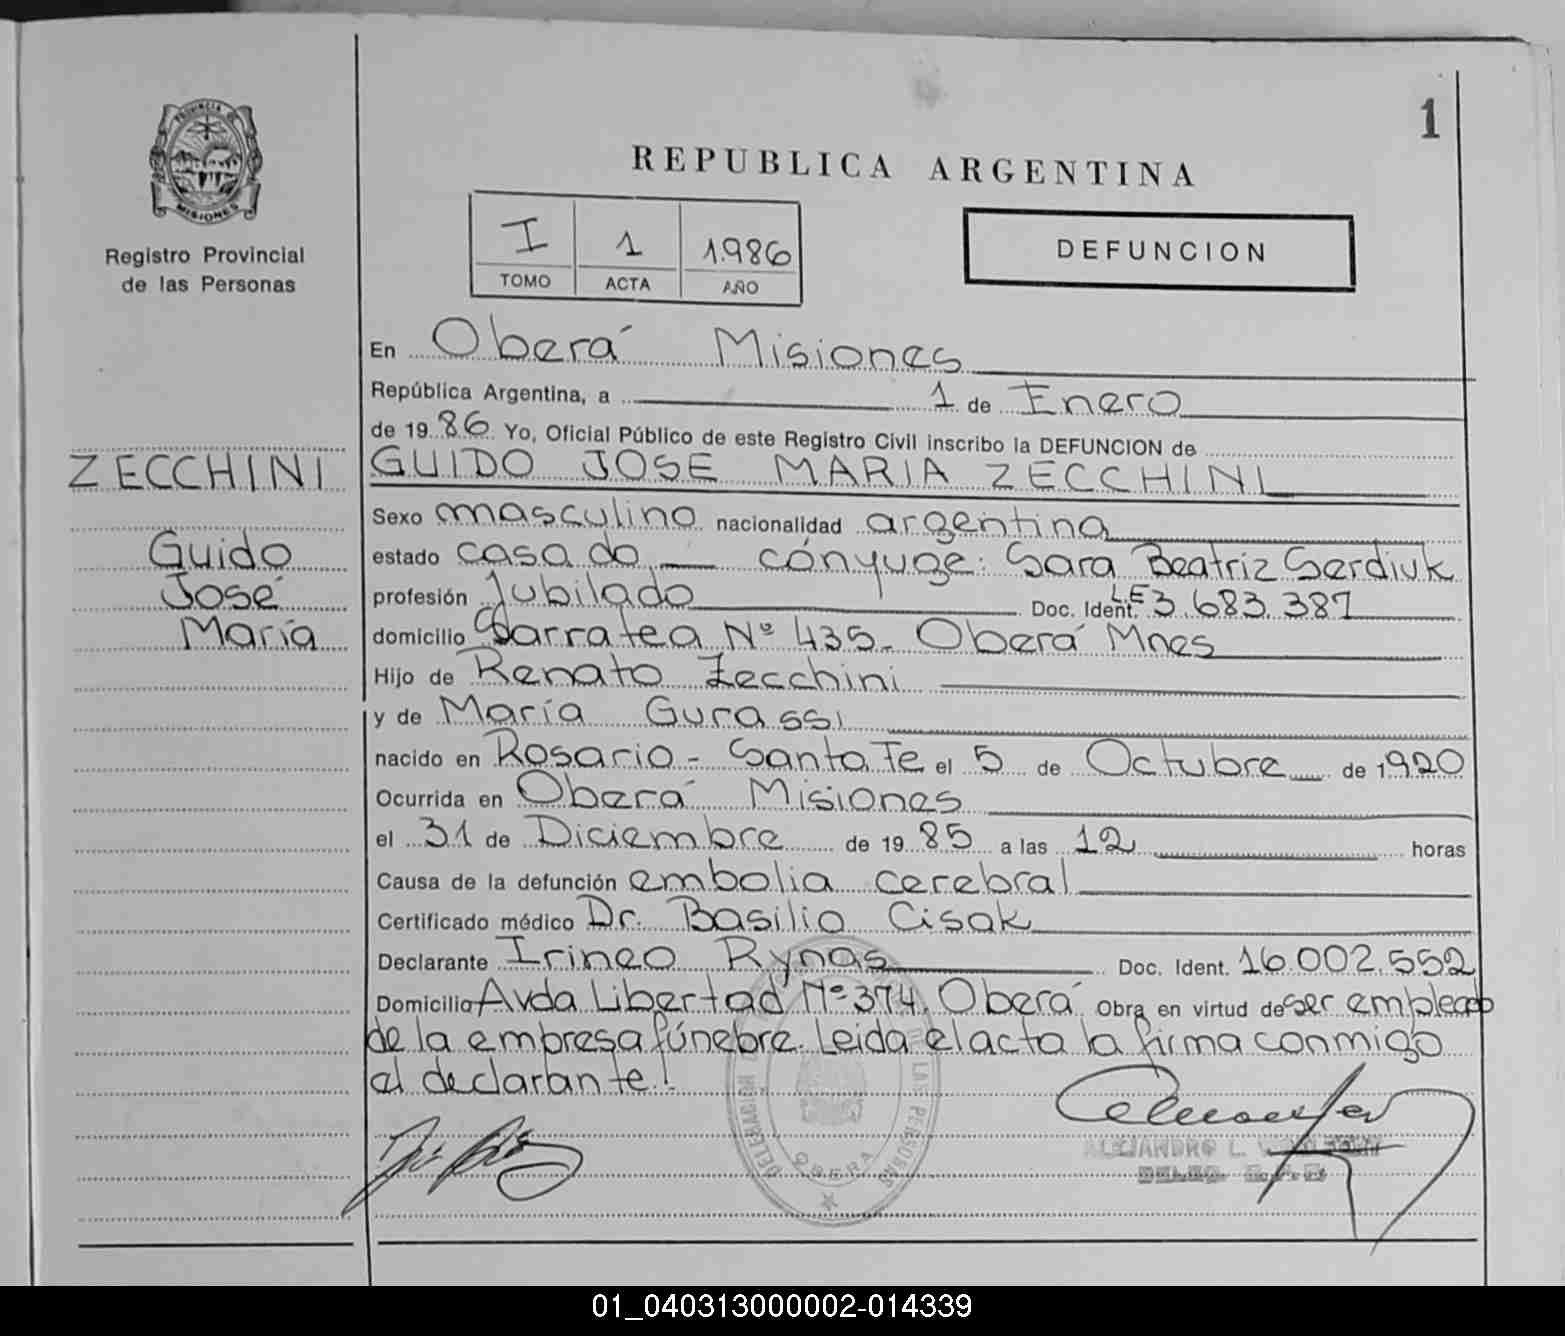 1
PROVINCIA DE
MISIONES
Registro Provincial
de las Personas
REPUBLICA ARGENTINA
I 1 1.986
TOMO ACTA AÑO
DEFUNCION
En Oberá Misiones
República Argentina, a 1 de Enero
de 19 86 Yo, Oficial Público de este Registro Civil inscribo la DEFUNCION de
ZECCHINI
GUIDO JOSE MARIA ZECCHINI
Sexo masculino nacionalidad argentina
Guido
estado casado cónyuge: Sara Beatriz Serdiuk
José
profesión Jubilado Doc. Ident. L.E 3.683.387
María
domicilio Sarratea Nº 435. Oberá Mnes
Hijo de Renato Zecchini
y de María Gurassi
nacido en Rosario - Santa Fe el 5 de Octubre de 1920
Ocurrida en Oberá Misiones
el 31 de Diciembre de 19 85 a las 12 horas
Causa de la defunción embolia cerebral
Certificado médico Dr. Basilio Cisak
Declarante Irineo Rynas Doc. Ident. 16.002.552
Domicilio Avda Libertad Nº 374. Oberá Obra en virtud de ser empleado
de la empresa fúnebre. Leida el acta la firma conmigo
el declarante!
DELEGACIÓN DE LAS PERSONAS
OBERA
ALEJANDRO L.
01_040313000002-014339